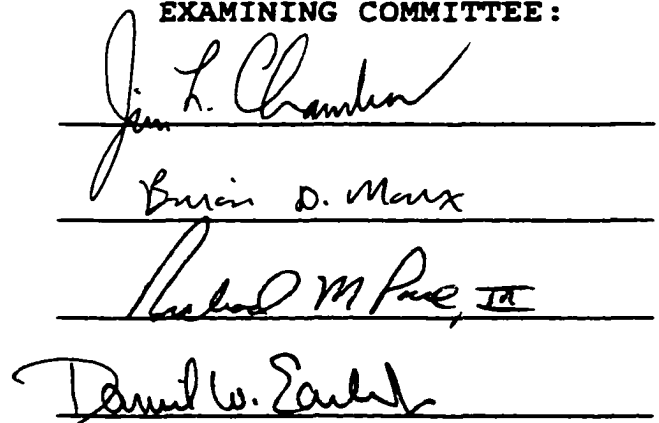 EXAMINING COMMITTEE:
Jim L. Chambers
Brian D. Marx
Richard M Pace, III
Daniel W.